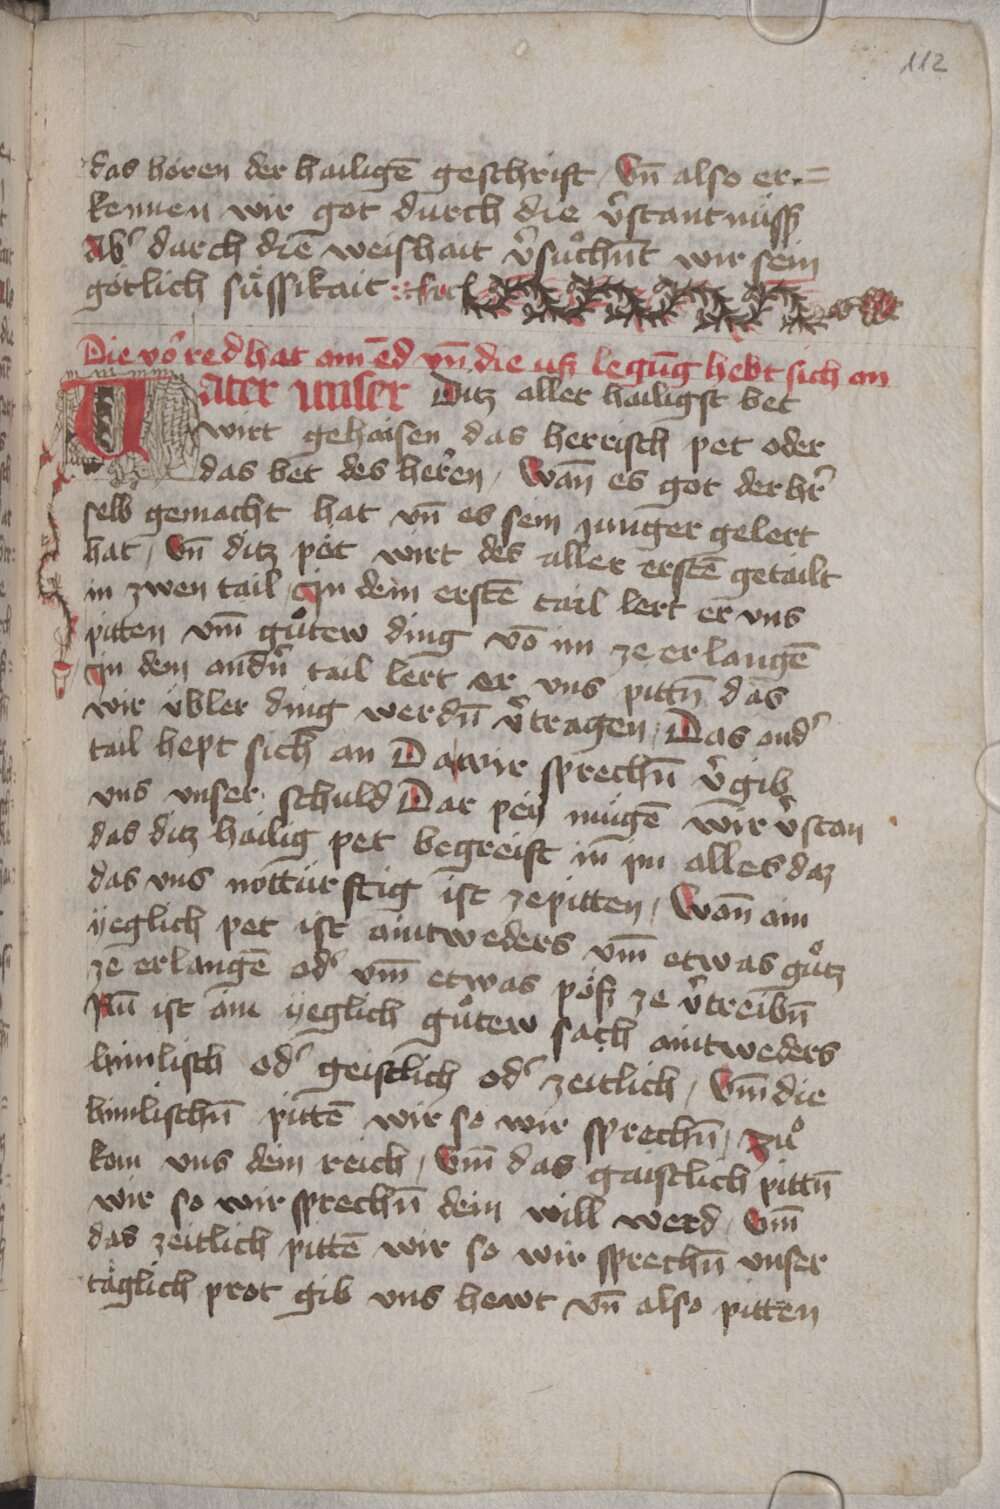 112
das hören der hailigē geschrift / Vn̄ also er=
kennen wir got durch die v̉stantnüss
Ab̉ durch die weishait v̉suͦchnt wir sein
götlich süssikait
Die vo᷑red hat ain ēd vn̄ die uſz legūg hebt sich an
Vater unser Ditz aller hailigst bet
wirt gehaisen das herrisch pet oder
das bet des heren / Wān es got der hr̄
selb gemacht hat vn̄ es sein iunger gelert
hat / Vn̄ ditz pet wirt des aller erstē getailt
in zwen tail / In dem erstē tail lert er vns
pitten vm̄ guͦtew ding vō im ze erlangē
In dem andn̉ tail lert er vns pittn̄ das
wir übler ding werdn̄ v̉tragen / Das and̉
tail hept sich an Da wir sprechn̄ v̉gib
vns vnser schuld Dar pey mügē wir v̉stan
das ditz hailig pet begreift in im alles daz
das vns nottürftig ist ze pitten / Wān ain
yeglich pet ist aintweders vm̄ etwas guͦtz
ze erlangē od̉ vm̄ etwas pösz ze v̉treibn̄
Nū ist ain yeglich guͦtew sach aintweders
himlisch od̉ geistlich od̉ zeitlich / Vm̄ die
himlischn̄ pittē wir so wir sprechn̄ / Zuͦ
kom vns dein reich / Vm̄ das gaistlich pittn̄
wir so wir sprechn̄ dein will werd / Vm̄
das zeitlich pittē wir so wir sprechn̄ vnser
täglich prot gib vns hewt vn̄ also pitten